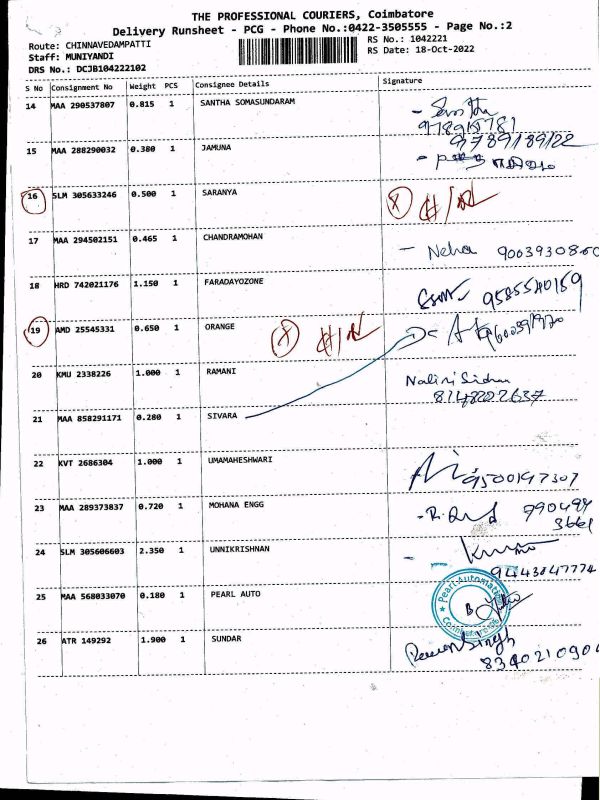 THE PROFESSIONAL COURIERS, Coimbatore
Delivery Runsheet - PCG - Phone No.:0422-3505555 - Page No.:2
Route: CHINNAVEDAMPATTI
RS No.: 1042221
Staff: MUNIYANDI
RS Date: 18-Oct-2022
DRS No.: DCJB104222102
S No Consignment No Weight PCS Consignee Details Signature
14 MAA 290537807 0.815 1 SANTHA SOMASUNDARAM
9789189122
15 MAA 288290032 0.380 1 JAMUNA
16 SLM 305633246 0.500 1 SARANYA
17 MAA 294502151 0.465 1 CHANDRAMOHAN - Neha
18 HRD 742021176 1.150 1 FARADAYOZONE 9585540159
19 AMD 25545331 0.650 1 ORANGE
20 KMU 2338226 1.000 1 RAMANI
8148222637
21 MAA 858291171 0.280 1 SIVARA
22 KVT 2686304 1.000 1 UMAMAHESHWARI 9500147307
23 MAA 289373837 0.720 1 MOHANA ENGG
24 SLM 305606603 2.350 1 UNNIKRISHNAN
9443047774
25 MAA 568033070 0.180 1 PEARL AUTO
26 ATR 149292 1.900 1 SUNDAR